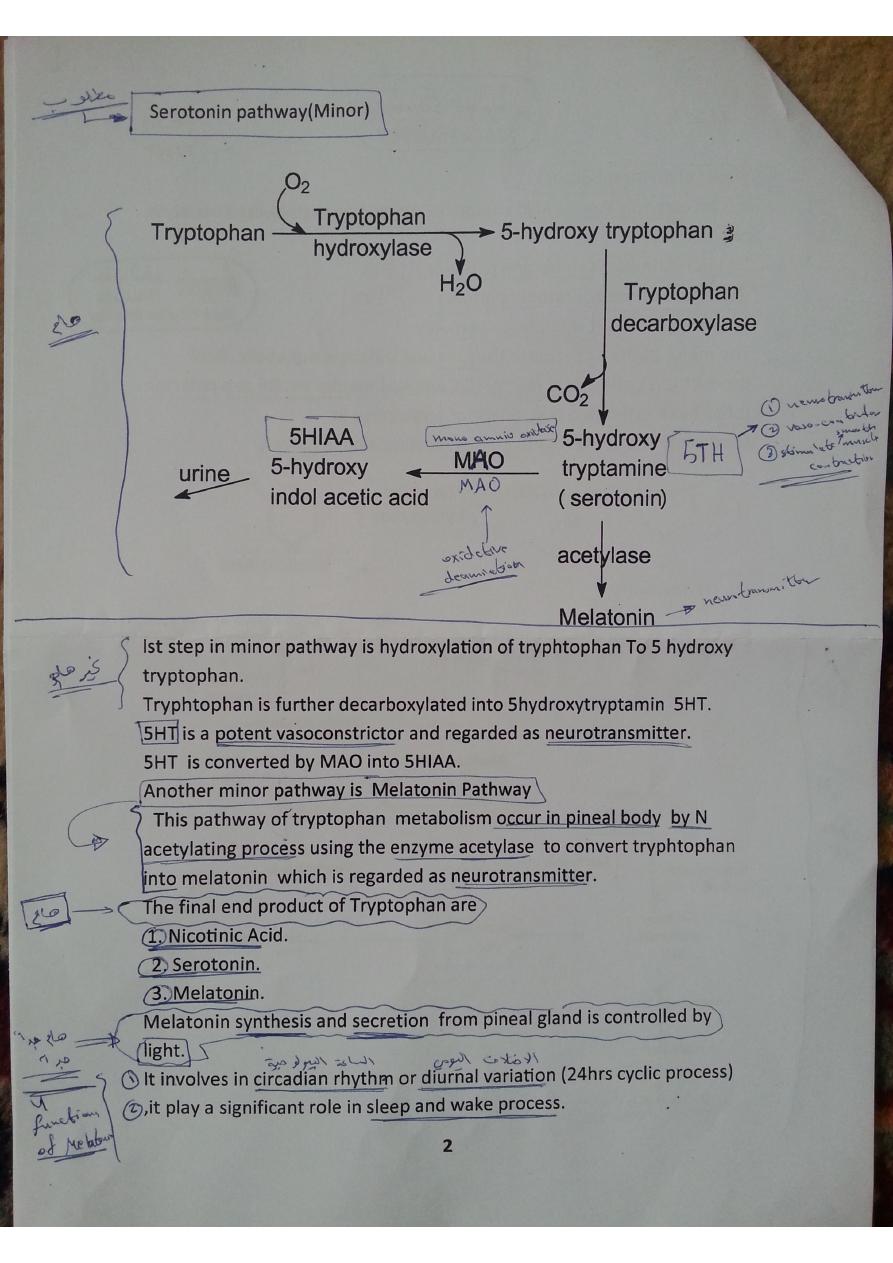 مطلوب
Serotonin pathway(Minor)
O2
Tryptophan
Tryptophan
hydroxylase
5-hydroxy tryptophan
H2O
Tryptophan
decarboxylase
هام
CO2
① neurotransmitter
② vaso-constrictor
③ stimulate smooth muscle
contraction
5TH
5-hydroxy
tryptamine
( serotonin)
mono amnio oxidase
MAO
MAO
oxidetive
deamination
5HIAA
5-hydroxy
indol acetic acid
urine
acetylase
Melatonin
neurotransmitter
غير هام
Ist step in minor pathway is hydroxylation of tryphtophan To 5 hydroxy
tryptophan.
Tryphtophan is further decarboxylated into 5hydroxytryptamin 5HT.
5HT is a potent vasoconstrictor and regarded as neurotransmitter.
5HT is converted by MAO into 5HIAA.
Another minor pathway is Melatonin Pathway
This pathway of tryptophan metabolism occur in pineal body by N
acetylating process using the enzyme acetylase to convert tryphtophan
into melatonin which is regarded as neurotransmitter.
هام
The final end product of Tryptophan are
1. Nicotinic Acid.
2. Serotonin.
3. Melatonin.
هام جدا
جدا
Melatonin synthesis and secretion from pineal gland is controlled by
light.
الساعة البيولوجية
اليومي
① It involves in circadian rhythm or diurnal variation (24hrs cyclic process)
②,it play a significant role in sleep and wake process.
function
of Melaton
2